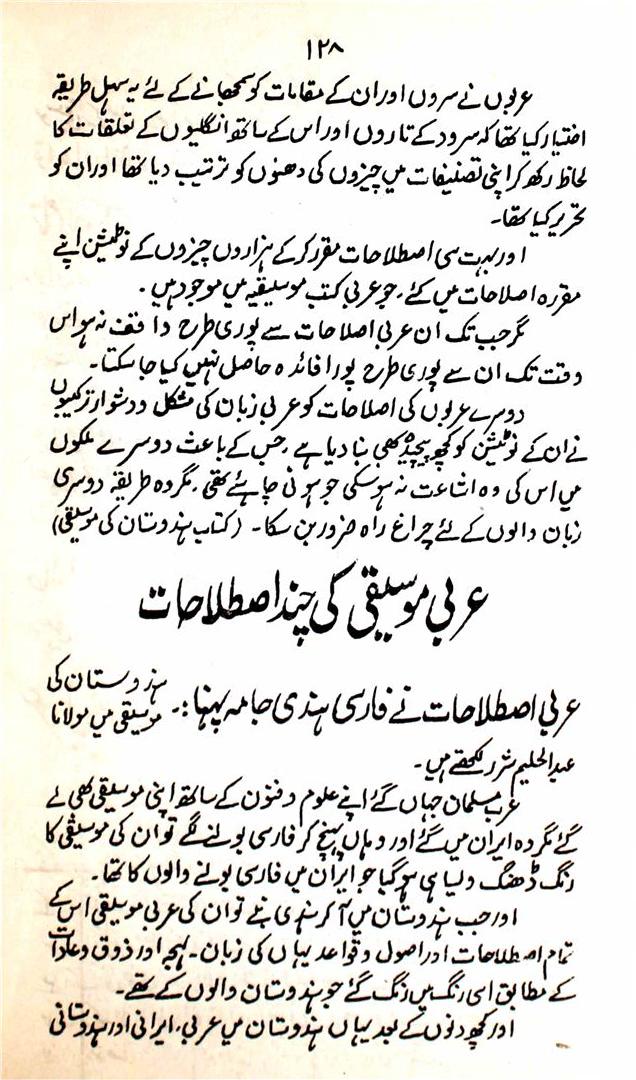 ۱۲۸
عربوں نے سروں اور ان کے مقامات کو سمجھانے کے لئے یہ سہل طریقہ
اختیار کیا تھا کہ سرود کے تاروں اور اس کے ساتھ انگلیوں کے تعلقات کا
لحاظ رکھ کر اپنی تصنیفات میں چیزوں کی دھنوں کو ترتیب دیا تھا اور ان کو
تحریر کیا تھا۔
اور بہت سی اصطلاحات مقرر کر کے ہزاروں چیزوں کے نوٹیشن اپنے
مقررہ اصلاحات میں کئے، جو عربی کتب موسیقیہ میں موجود ہیں۔
مگر جب تک ان عربی اصلاحات سے پوری طرح واقف نہ ہو اس
وقت تک ان سے پوری طرح پورا فائدہ حاصل نہیں کیا جا سکتا۔
دوسرے عربوں کی اصلاحات کو عربی زبان کی مشکل و دشوار ترکیبوں
نے ان کے نوٹیشن کو کچھ پیچیدہ بھی بنا دیا ہے، جس کے باعث دوسرے ملکوں
میں اس کی وہ اشاعت نہ ہو سکی جو ہونی چاہئے تھی، مگر وہ طریقہ دوسری
زبان والوں کے لئے چراغ راہ ضرور بن سکا۔ (کتاب ہندوستان کی موسیقی)
عربی موسیقی کی چند اصطلاحات
عربی اصطلاحات نے فارسی ہندی جامہ پہنا:۔ ہندوستان کی
موسیقی میں مولانا
عبدالحلیم شرر لکھتے ہیں۔
عرب مسلمان جہاں گئے اپنے علوم و فنون کے ساتھ اپنی موسیقی بھی لے
گئے مگر وہ ایران میں گئے اور وہاں پہنچ کر فارسی بولنے لگے تو ان کی موسیقی کا
رنگ ڈھنگ ویسا ہی ہو گیا جو ایران میں فارسی بولنے والوں کا تھا۔
اور جب ہندوستان میں آکر ہندی بنے تو ان کی عربی موسیقی اس کے
تمام اصطلاحات اور اصول و قواعد یہاں کی زبان۔ لہجہ اور ذوق و عادات
کے مطابق اسی رنگ میں رنگ گئے جو ہندوستان والوں کے تھے۔
اور کچھ دنوں کے بعد یہاں ہندوستان میں عربی، ایرانی اور ہندوستانی